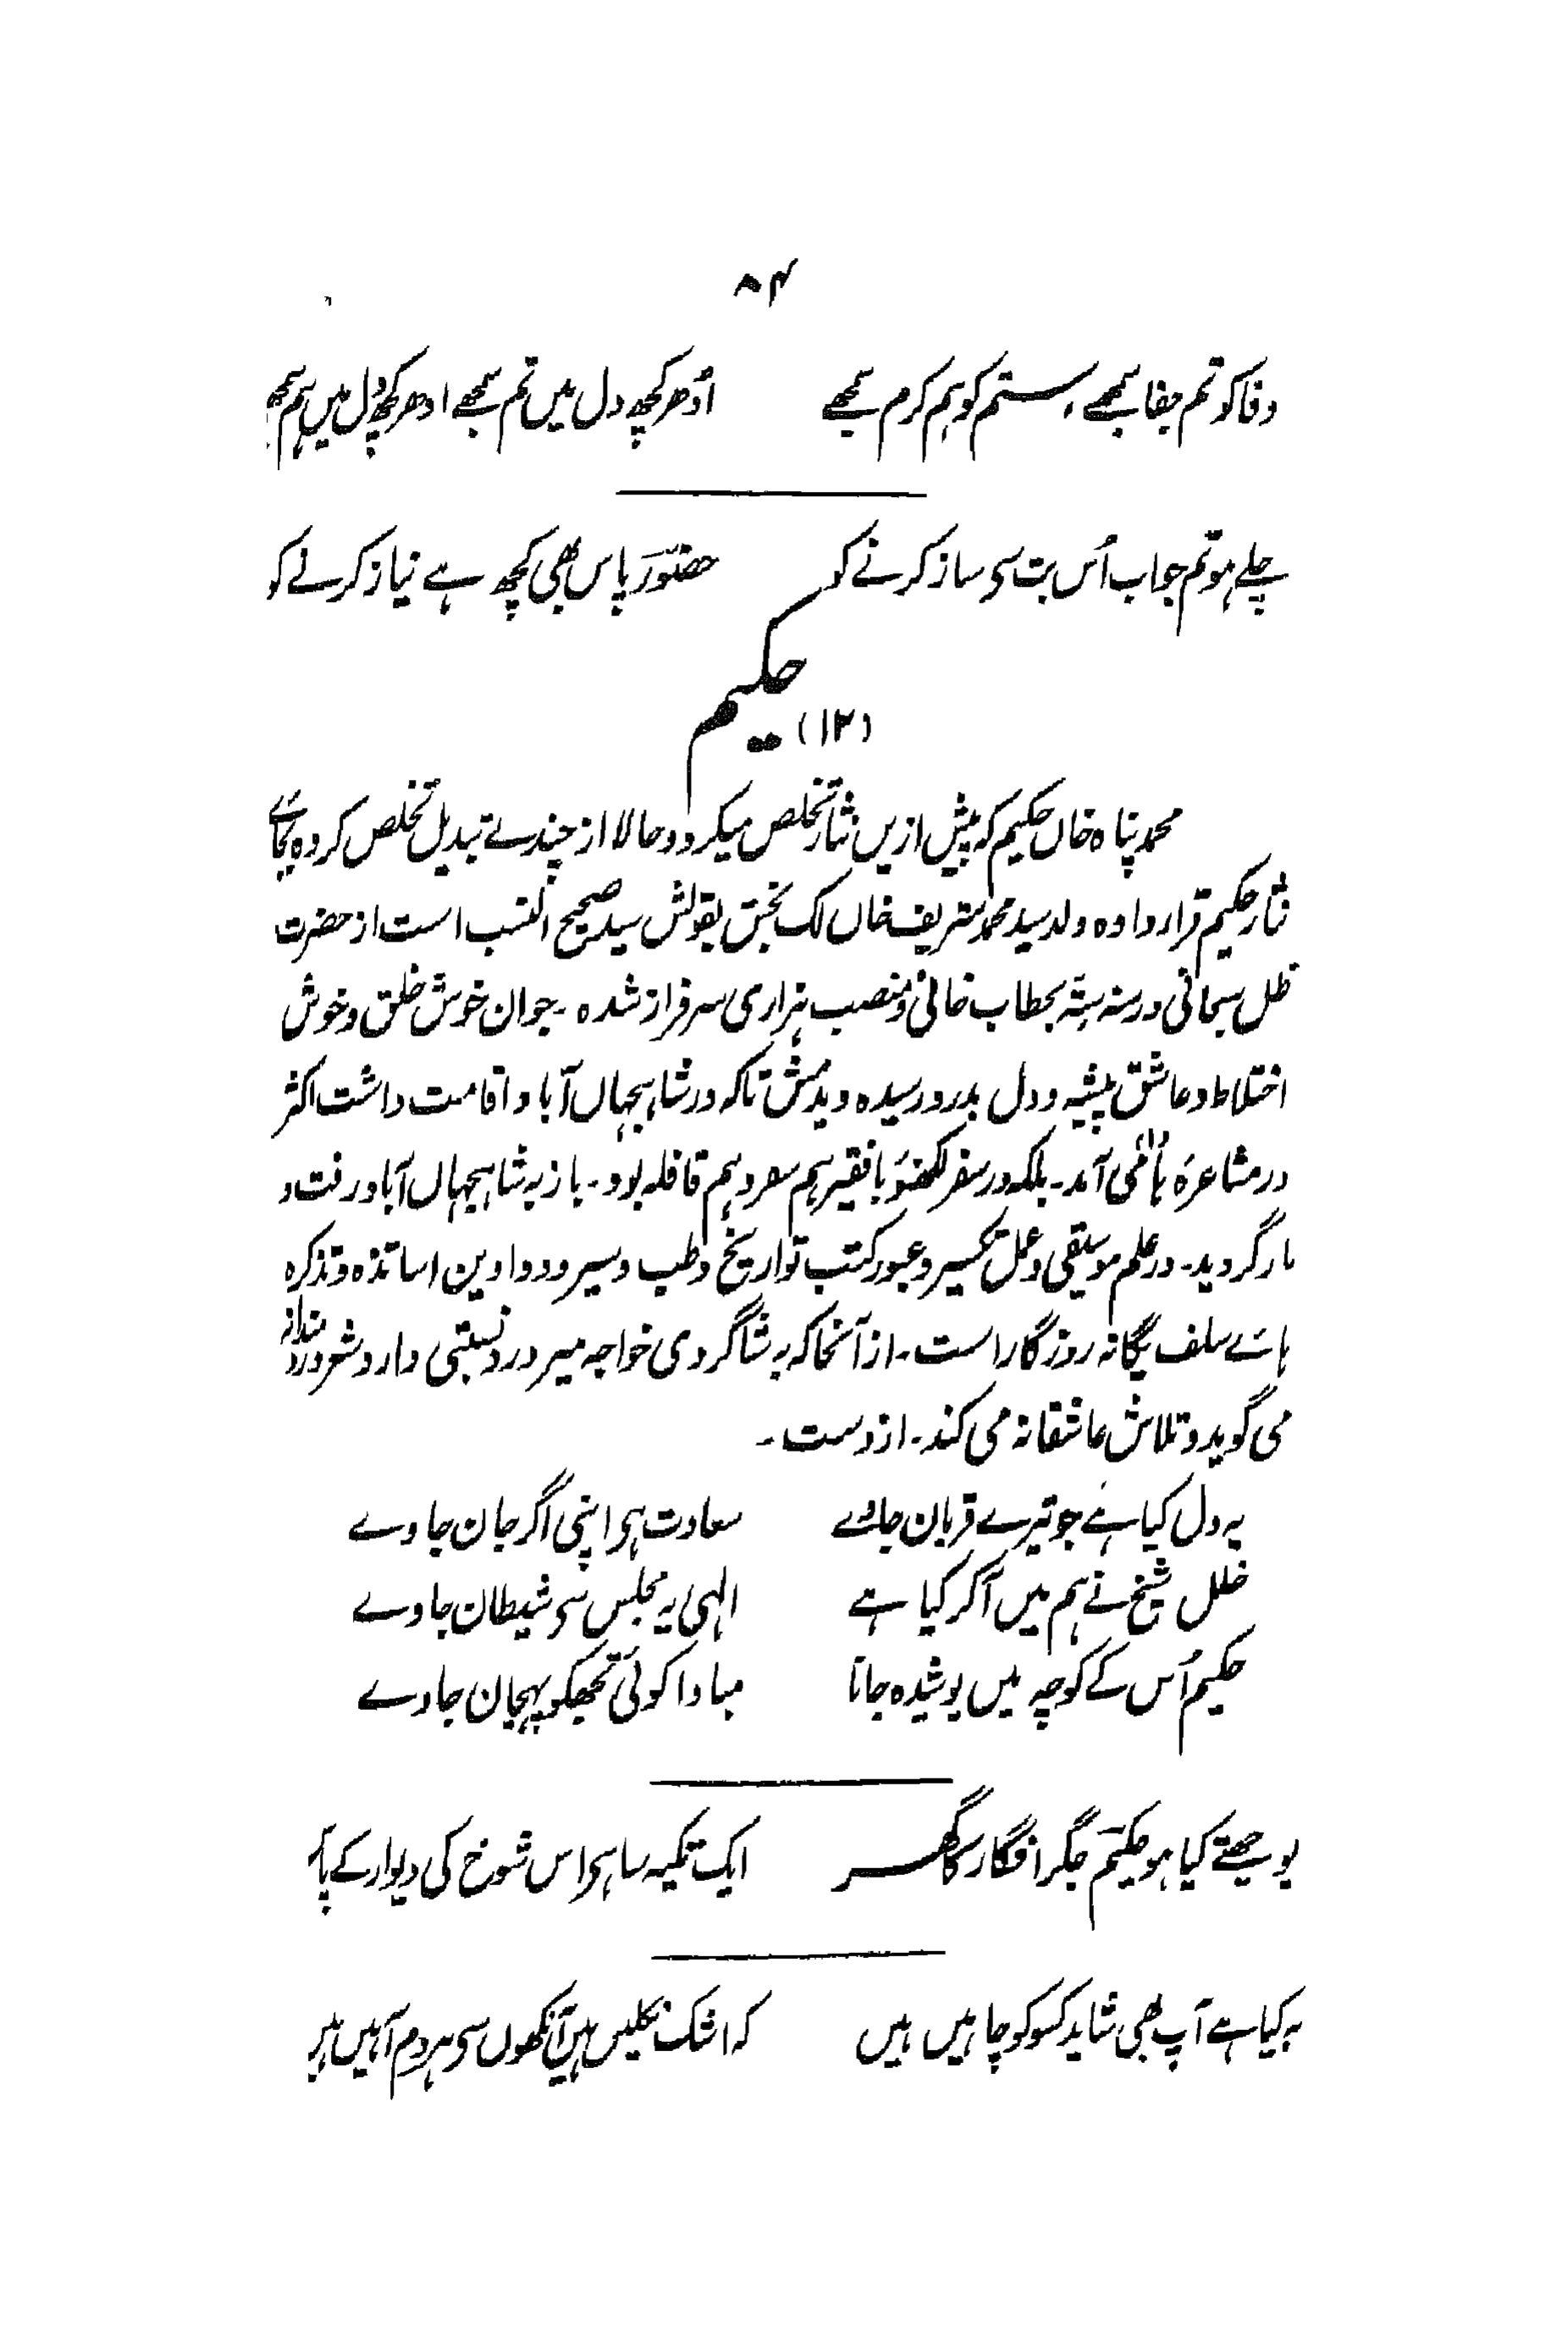 ۸۴
وفا کو تم جفا سمجھے، ستم کو ہم کرم سمجھے اُدھر کچھ دل میں تم سمجھے ادھر کچھ دل میں ہم سمجھے
چلے ہو تم جو اب اُس بت سی ساز کرنے کو حضورؔ پاس بھی کچھ ہے نیاز کرنے کو
حکیم
(۱۲)
محمد پناہ خاں حکیم کہ پیش ازیں نثار تخلص میکرد و حالا از چندے تبدیل تخلص کردہ بجائے
نثار حکیم قرار دادہ ولد سید محمد شریف خاں لک بخش بقولش سید صحیح النسب است از حضرت
ظل سبحانی در سنہ بخطاب خانی و منصب ہزاری سرفراز شدہ ۔ جوان خوش خلق و خوش
اختلاط و عاشق پیشہ و دل بدرد رسیدہ دیدمش تاکہ در شاہجہاں آباد اقامت داشت اکثر
در مشاعرہ ہائمی آمد ۔ بلکہ در سفر لکھنؤ با فقیر ہم سفر و ہم قافلہ بود ۔ باز بہ شاہیجہاں آباد رفت و
بارگردید ۔ در علم موسیقی و عمل تکسیر و عبور کتب تواریخ و طب و سیر و دواوین اساتذہ و تذکرہ
ہائے سلف یگانہ روزگار است ۔ از آنجا کہ بہ شاگردی خواجہ میر درد نسبتی دارد شعر دردمندانہ
می گوید و تلاش عاشقانہ می کند ۔ ازوست ۔
یہ دل کیا ہے جو تیرے قربان جاوے سعادت ہی اپنی اگر جان جاوے
خلل شیخ نے ہم میں آ کر کیا ہے الہی یہ مجلس سی شیطان جاوے
حکیم اُس کے کوچہ میں پوشیدہ جانا مبادا کوئی تجھکو پہچان جاوے
پوچھتے کیا ہو حکیمؔ جگر افگار کا گھر ایک تکیہ سا ہی اس شوخ کی دیوار کے پاس
یہ کیا ہے آپ بھی شاید کسو کو چاہیں ہیں کہ اشک نکلیں ہیں آنکھوں سی ہر دم آہیں ہیں